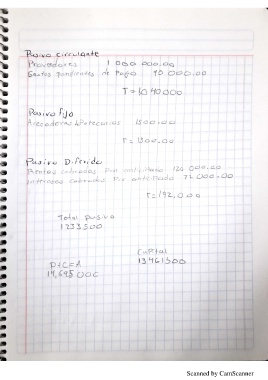 Pasivo circulante
Proveedores 1 000 000.00
Gastos pendientes de Pago 40 000.00
T = 1040000
Pasivo fijo
Acreedores hipotecarios 1500.00
T = 1500.00
Pasivo Diferido
Rentas cobradas Por anticipado 120 000.00
Intereses cobrados Por anticipado 72 000.00
T = 192,000
Total pasivo
1233500
Capital
13461500
P+C=A
14,695 000
Scanned by CamScanner